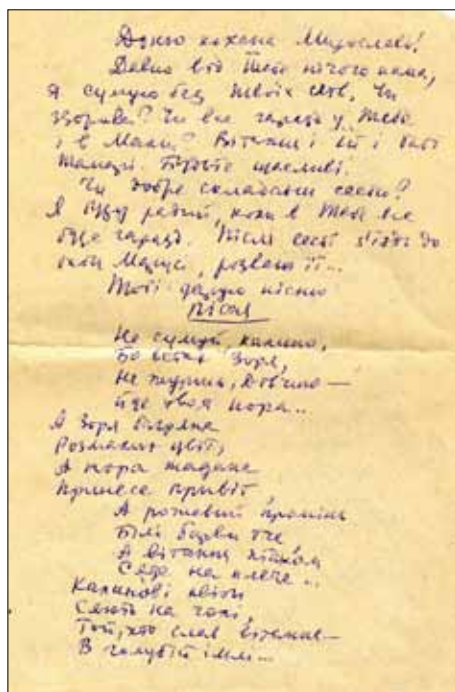 Доню кохана Мирославо!
Давно від Тебе нічого нема,
Я сумую без Твоїх слів. Чи
здорова? Чи все гаразд у Тебе
і в Мами? Вітання і їй і
Тамарі. Будьте щасливі.
Чи добре складаєш сесію?
Я буду радий, коли в Тебе все
буде гаразд. Після сесії з'їздь до
Матусі, розваж її...
Тобі дарую пісню
Пісня
Не сумуй, калино,
Бо встає Зоря,
Не журись, Дівчино —
Йде твоя пора..
А Зоря багряна
Розмаює цвіт,
А пора жадана
Принесе привіт
А рожевий промінь
Білі барви тче
А вітання птахом
Сяде на плече...
Калинові квіти
Сяють на чолі,
Той, хто слав вітання —
В голубій імлі...